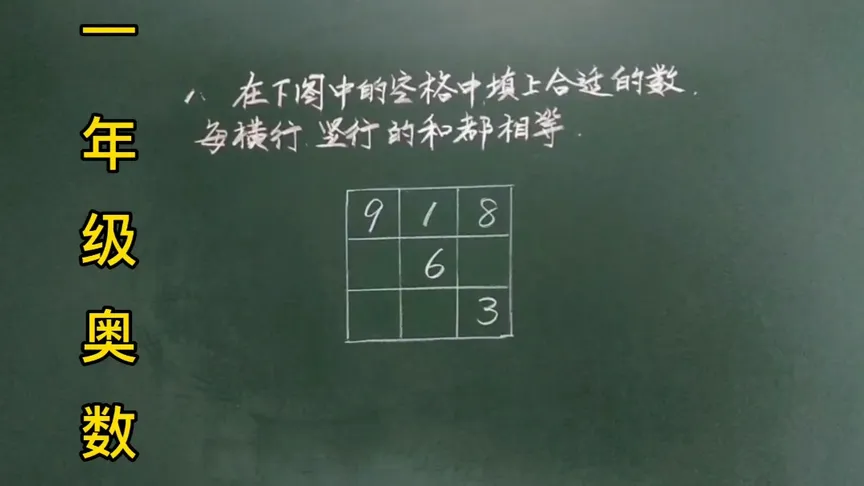 一年级奥数
1、在下图中的空格中,填上合适的数.
每横行、竖行的和都相等.
9 1 8
6
3